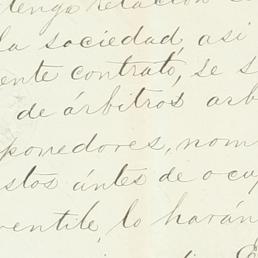 tenga relación
la sociedad, así
ente contrato, se s
de árbitros arb
ponedores, nom
stos ántes de ocup
ventile, lo harán